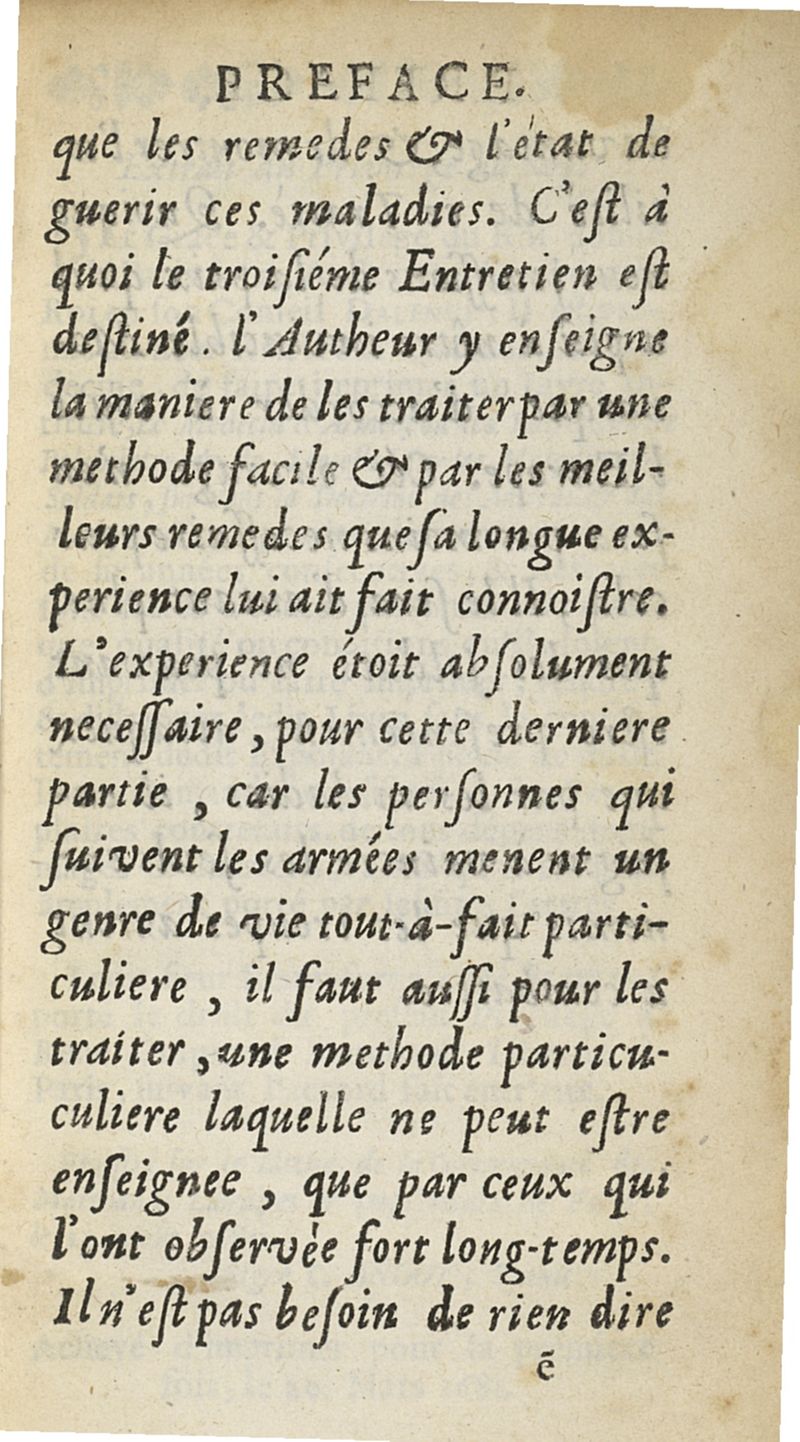 PREFACE.
que les remedes & l'état de
guerir ces maladies. C'eſt à
quoi le troiſiéme Entretien eſt
deſtiné. l'Autheur y enſeigne
la maniere de les traiter par une
methode facile & par les meil-
leurs remedes que ſa longue ex-
perience lui ait fait connoiſtre.
L'experience étoit abſolument
neceſſaire, pour cette derniere
partie , car les perſonnes qui
ſuivent les armées menent un
genre de vie tout-à-fait parti-
culiere , il faut auſſi pour les
traiter, une methode particu-
culiere laquelle ne peut eſtre
enſeignee , que par ceux qui
l'ont obſervèe fort long-temps.
Il n'eſt pas beſoin de rien dire
ẽ